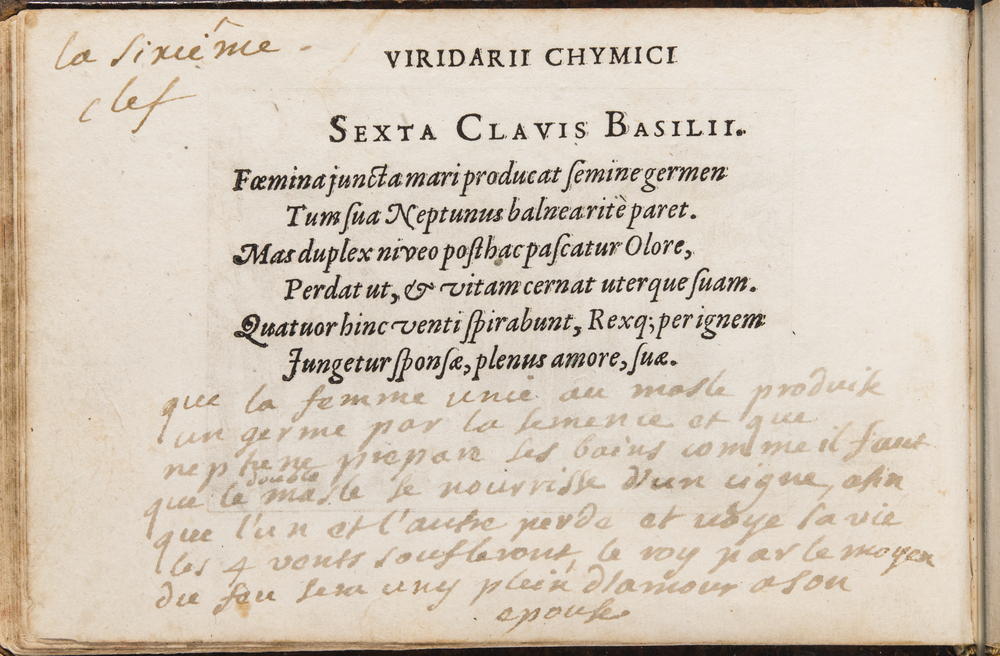 la sixiême
clef
VIRIDARII CHYMICI
SEXTA CLAVIS BASILII.
Fœmina juncta mari producat ſemine germen
Tum ſua Neptunus balnea ritè paret.
Mas duplex niveo poſthac paſcatur Olore,
Perdat ut, & vitam cernat uterque ſuam.
Quatuor hinc venti ſpirabunt, Rexq; per ignem
Jungetur ſponſæ, plenus amore, ſuæ.
que la femme unie au masle produise
un germe par la semence et que
neptune prepare ses bains comme il faut
double
que le masle se nourrisse d'un cigne, afin
que l'un et l'autre perde et voye sa vie
les 4 vents soufleront, le roy par le moyen
du feu sera uny plein d'amour a son
epouse